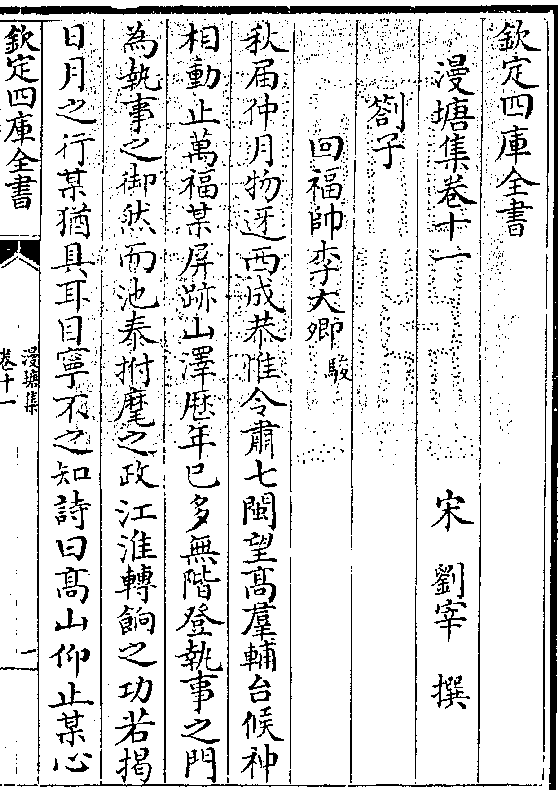 欽定四庫全書
漫塘集卷十一
宋 劉宰 撰
劄子
回福帥李大卿駿
秋届仲月物迓西成恭惟令肅七閩望髙羣輔台候神
相動止萬福某屏跡山澤歴年已多無階登執事之門
為執事之御然而池泰拊麾之政江淮轉餉之功若掲
日月之行某猶具耳目寧不之知詩曰髙山仰止某心
欽定四庫全書
漫塘集
卷十一
一